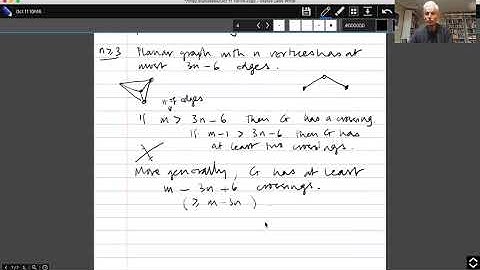 n≥3 Planar graph with n vertices has at
most 3n-6 edges.
n of edges
If m > 3n-6 then G has a crossing
If m-1 > 3n-6 then G has
at least two crossings.
More generally, G has at least
m - 3n + 6 crossings.
(≥ m-3n)